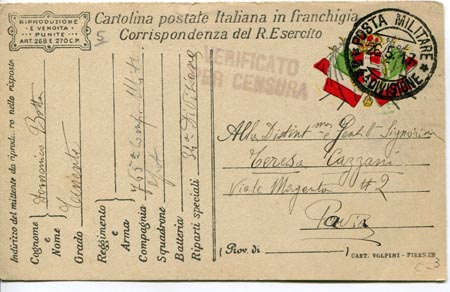 RIPRODUZIONE
E VENDITA
PUNITE
ART. 268 E 270 C.P.
Cartolina postale Italiana in franchigia
Corrispondenza del R. Esercito
5
VERIFICATO
PER CENSURA
POSTA MILITARE
DIVISIONE
Indirizzo del mittente da riprodurre nelle risposte
Cognome e Nome
Domenico Botta
Grado
Tenente
Reggimento e Arma
Compagnia
Squadrone
Batteria
Riparti speciali
Teresa Cazzani
Viale Magenta # 2
Pavia
(Prov. di )
CART. VOLPINI - FIRENZE
C-3